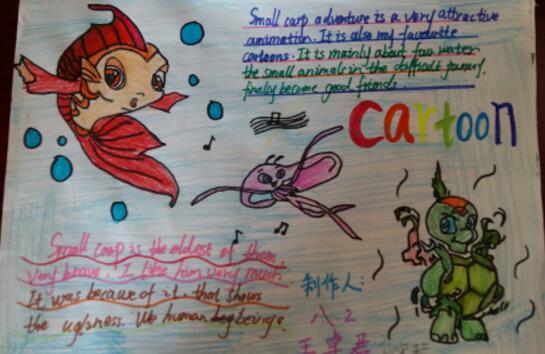 Small carp adventure is a very attractive
animation. It is also my favourite
cartoons. It is mainly about four water
the small animals in the difficult journey.
finally become good friends.
cartoon
Small carp is the oldest of them,
very brave. I like him very much.
It was because of it. that shows
the ugliness. We human begbeings.
制作人:
八.2
王